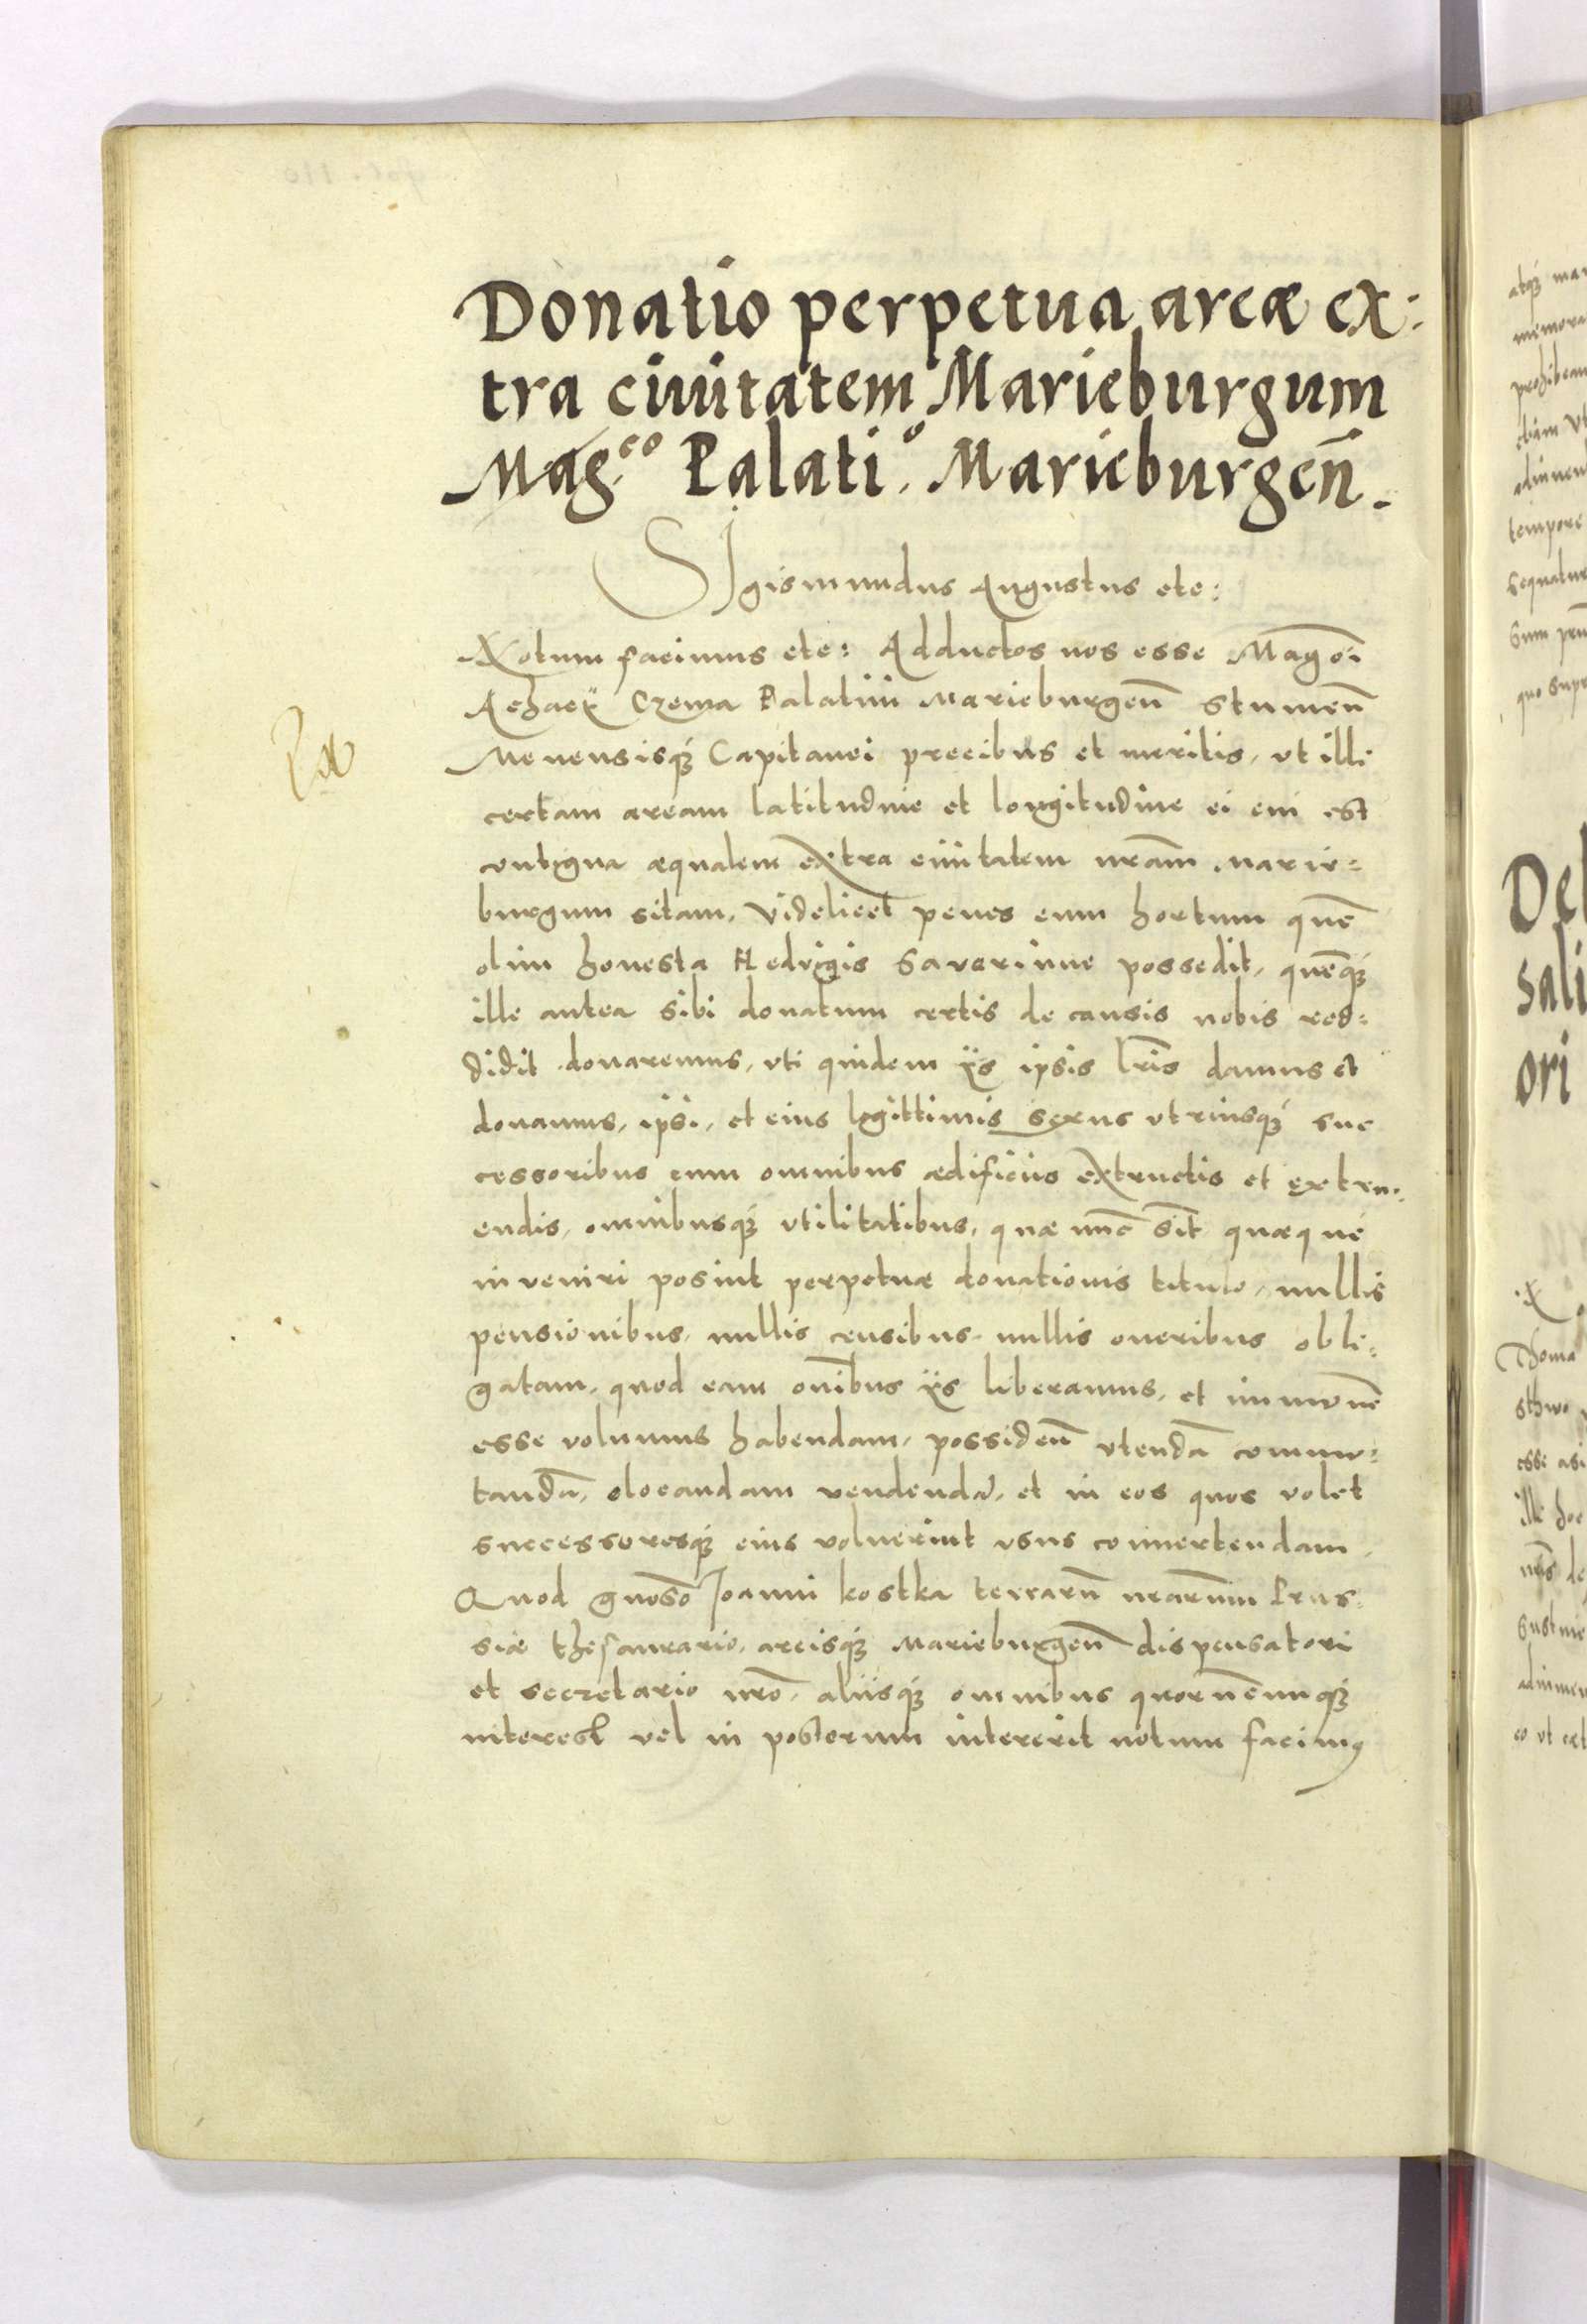 Donatio perpetua areæ ex:
tra ciuitatem Marieburgum
Mag.co Palati.o Marieburgeñ.
SIgismundus Augustus etc:
Notum facimus etc: Adductos nos esse Mag.ci
Achacÿ Czema Palatini Marieburgeñ Stumeñ
Mevensisq́ʒ Capitanei precibus et meritis, vt illi
certam aream latitudine et longitudine ei cui est
contigua æqualem extra ciuitatem nrãm Marie=
burgum sitam, Videlicet penes eum hortum quẽ
olim honesta Hedvigis Saverinne possedit, quẽq́ʒ
ille antea sibi donatum certis de causis nobis red=
didit donaremus, vti quidem ÿs ipsis lr̃is damus et
donamus, ipsi, et eius legittimis sexus vtriusq́ʒ suc
cessoribus cum omnibus ædificiis extructis et extru=
endis, omnibusq́ʒ vtilitatibus, quæ nũc sũt quæque
inveniri posint perpetuæ donationis titulo, nullis
pensionibus, nullis censibus, nullis oneribus obli=
gatam, quod eam oñibus ÿs liberamus, et immunẽ
esse volumus habendam, possideñ vtendã commu=
tandã, elocandam vendendã, et in eos quos volet
successoresq́ʒ eius voluerint vsus conuertendam.
Quod gnõso Joanni Kostka terrarũ nrarũm Prus=
siæ thesaurario, arcisq́ʒ Marieburgeñ dispensatori
et secretario nrõ, aliisq́ʒ omnibus quorũcunq́ʒ
interest vel in posterum intererit notum facimus
atq́ʒ
memora
tempore
Del
sali
ori
Thoma